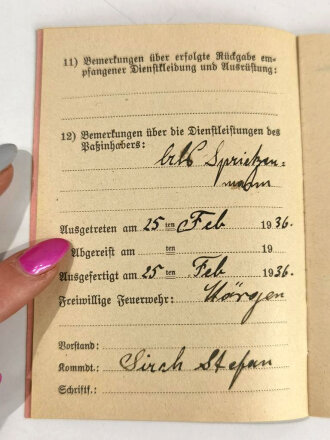 11) Bemerkungen über erfolgte Rückgabe em-
pfangener Dienstkleidung und Ausrüstung:
12) Bemerkungen über die Dienstleistungen des
Paßinhabers:
als Spritzen-
mann
Ausgetreten am 25 ten Feb 1936.
Abgereist am ten 19
Ausgefertigt am 25 ten Feb 1936.
Freiwillige Feuerwehr: Mörgen
Vorstand:
Kommdt.: Sirch Stefan
Schriftf.: